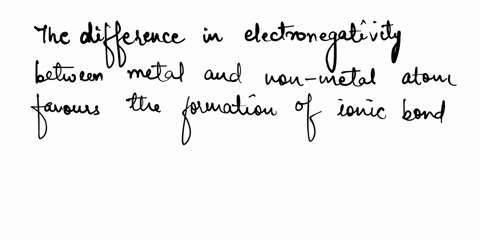 The difference in electronegativity
between metal and non-metal atom
favours the formation of ionic bond